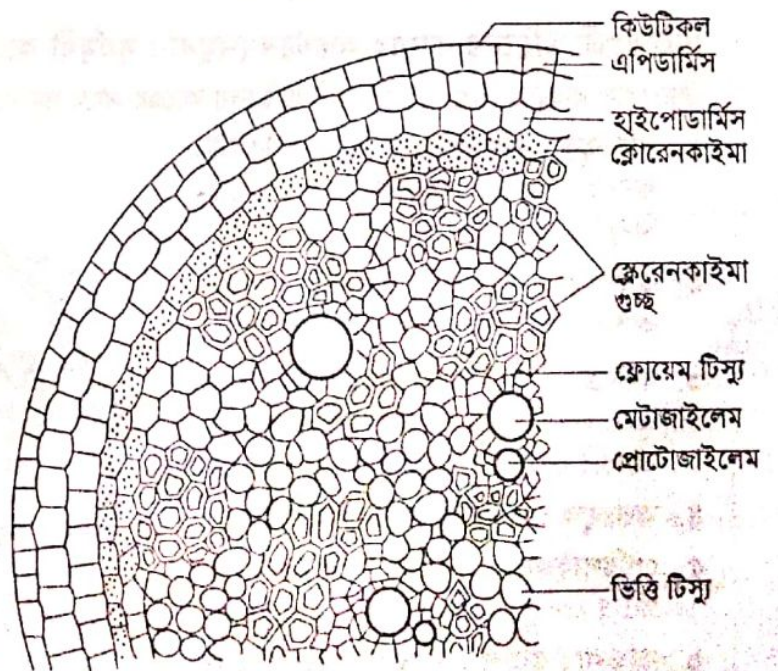 কিউটিকল
এপিডার্মিস
হাইপোডার্মিস
ক্লোরেনকাইমা
স্ক্লেরেনকাইমা
গুচ্ছ
ফ্লোয়েম টিস্যু
মেটাজাইলেম
প্রোটোজাইলেম
ভিত্তি টিস্যু